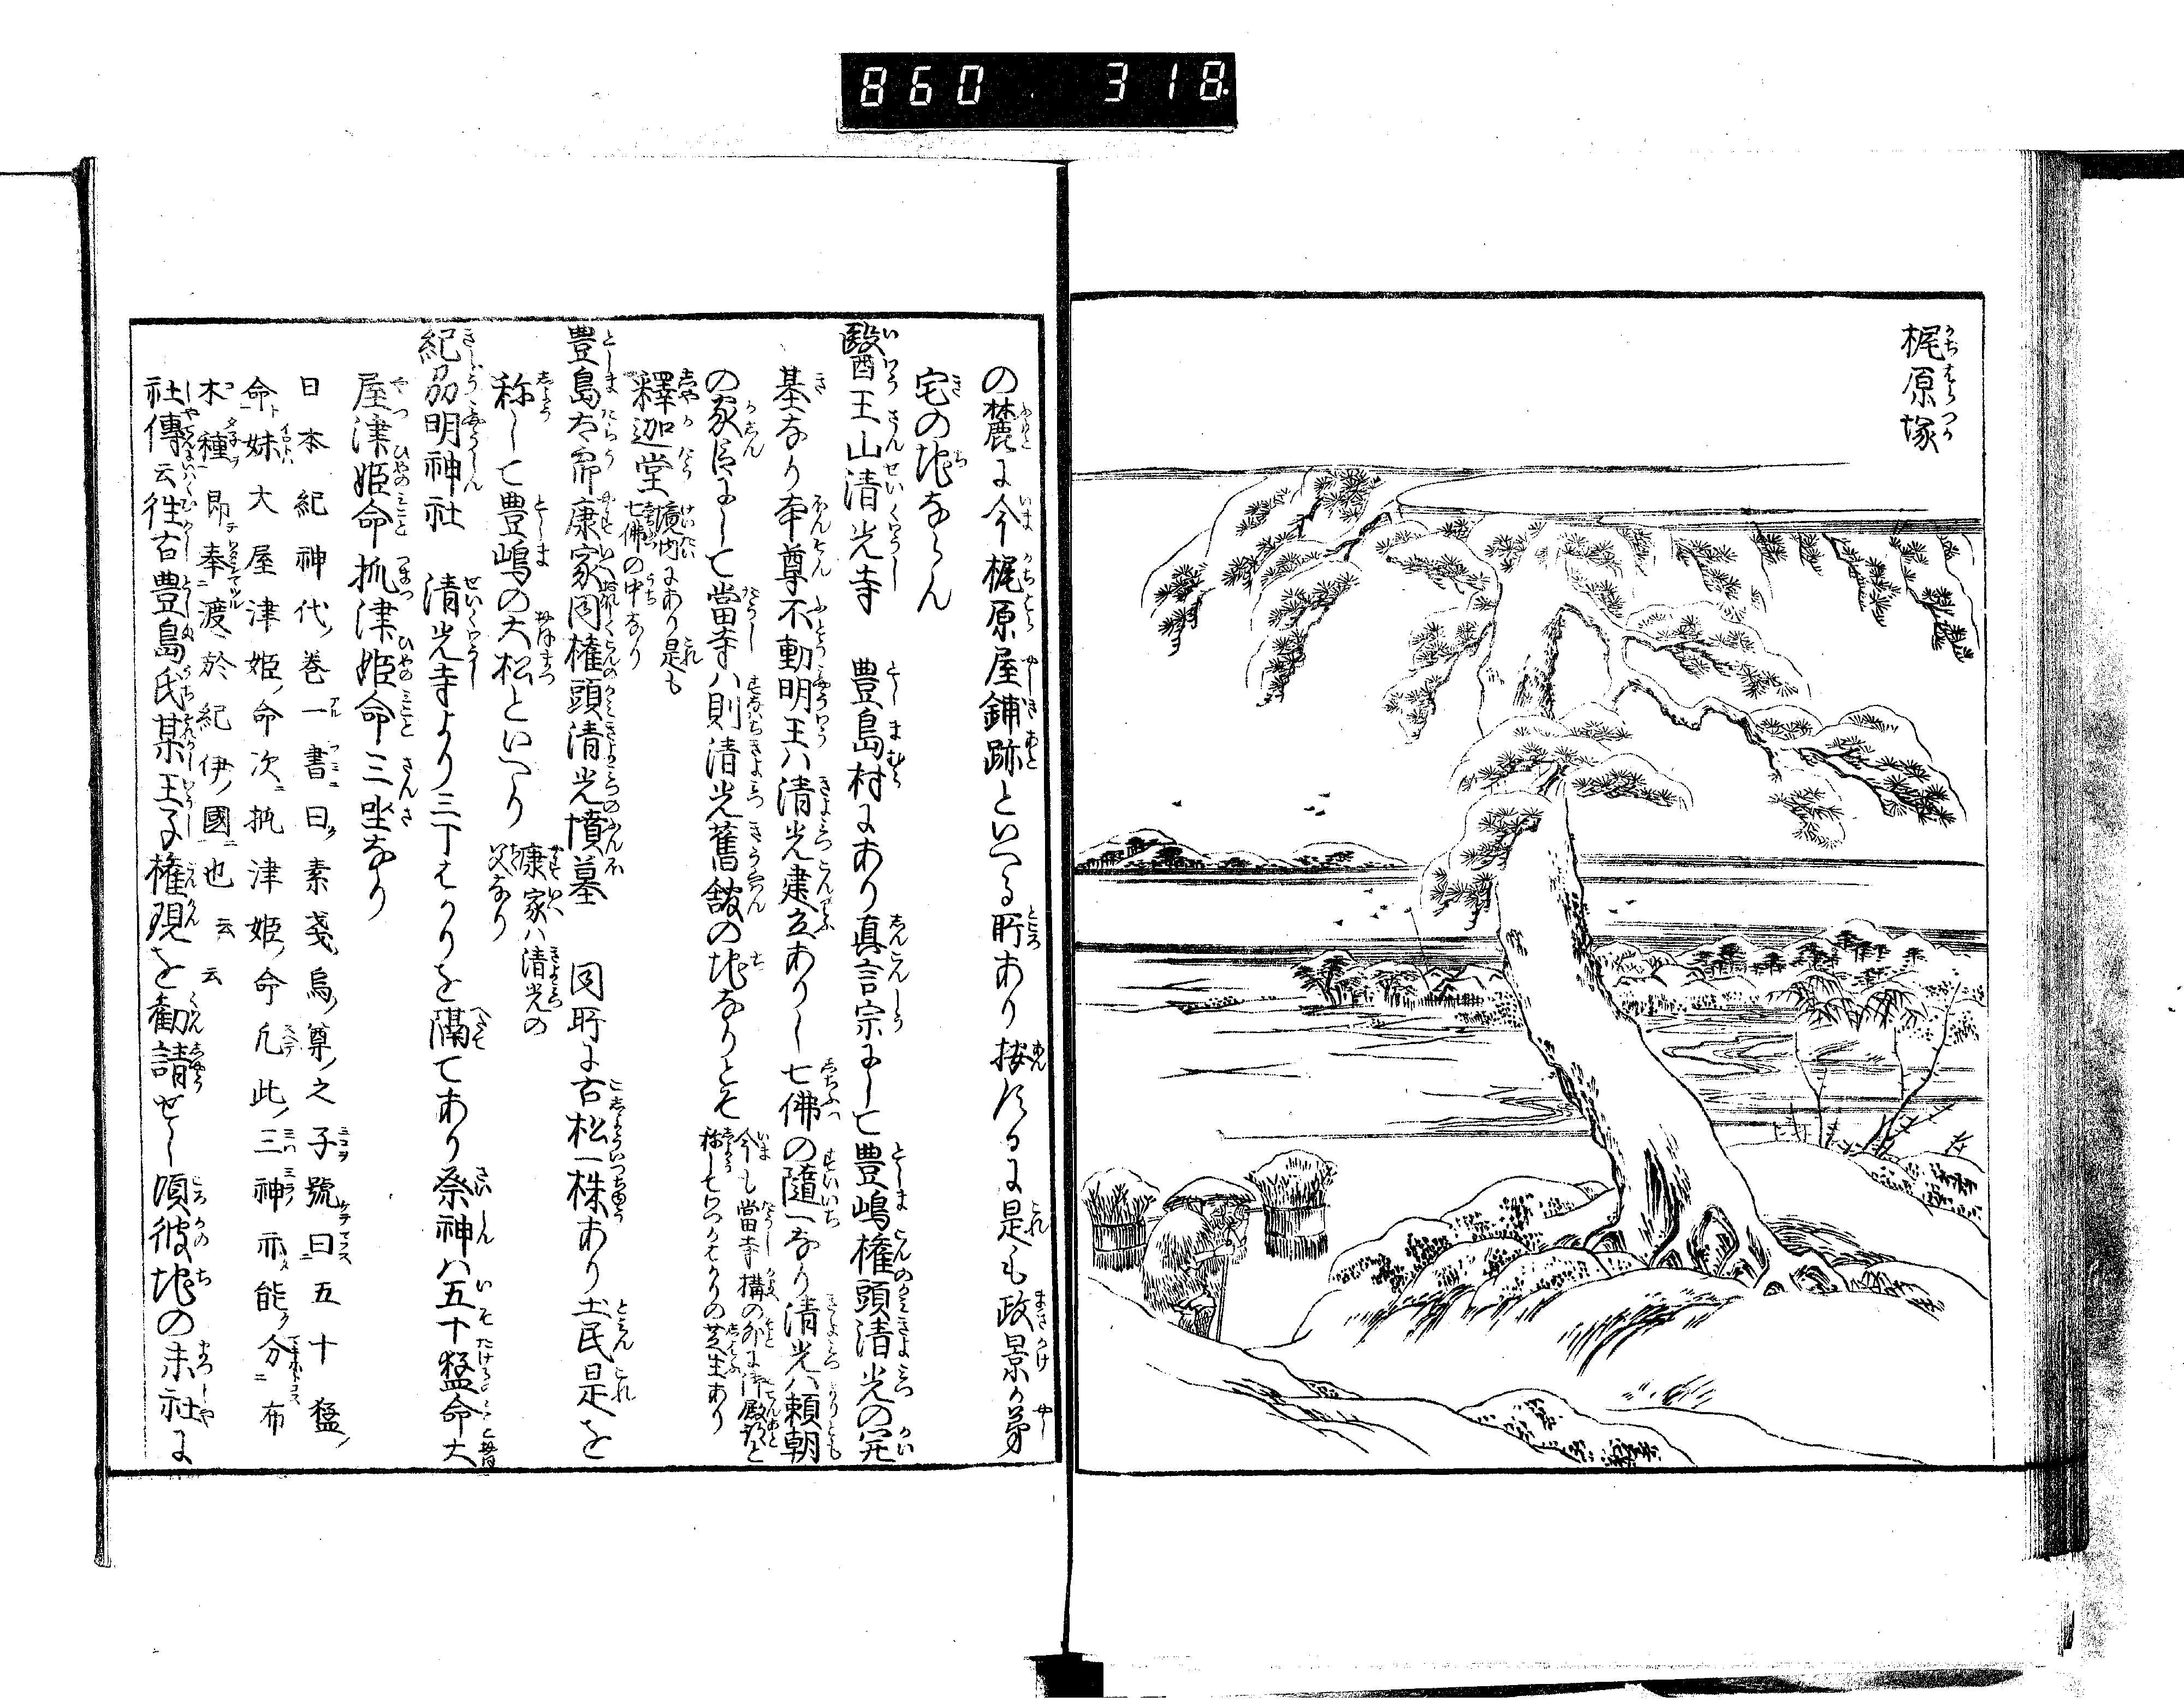 860 318
梶原塚
の麓に今梶原屋鋪跡といへる所あり按するに是も政景か第
宅の地ならん
醫王山清光寺 豊島村にあり真言宗にして豊嶋権頭清光の開
基なり本尊不動明王ハ清光建立ありし七佛の随一なり清光ハ頼朝
の家臣にして當寺ハ則清光舊舘の地なりとそ
今も當寺構の外に御殿跡と
称して
釋迦堂
境内にあり是も
七佛の中なり
豊島太郎康家同権頭清光墳墓 同所に古松一株あり土民是を
称して豊嶋の大松といへり
康家ハ清光の
父なり
紀州明神社 清光寺より三丁はかりを隔てあり祭神ハ五十猛命大
屋津姫命抓津姫命三坐なり
日本紀神代巻一書曰素戔烏尊之子號曰五十猛
命妹大屋津姫命次抓津姫命凡此三神亦能分布
木種即奉渡於紀伊國也云云
社傳云往古豊島氏某王子権現を勧請せし頃彼地の末社に